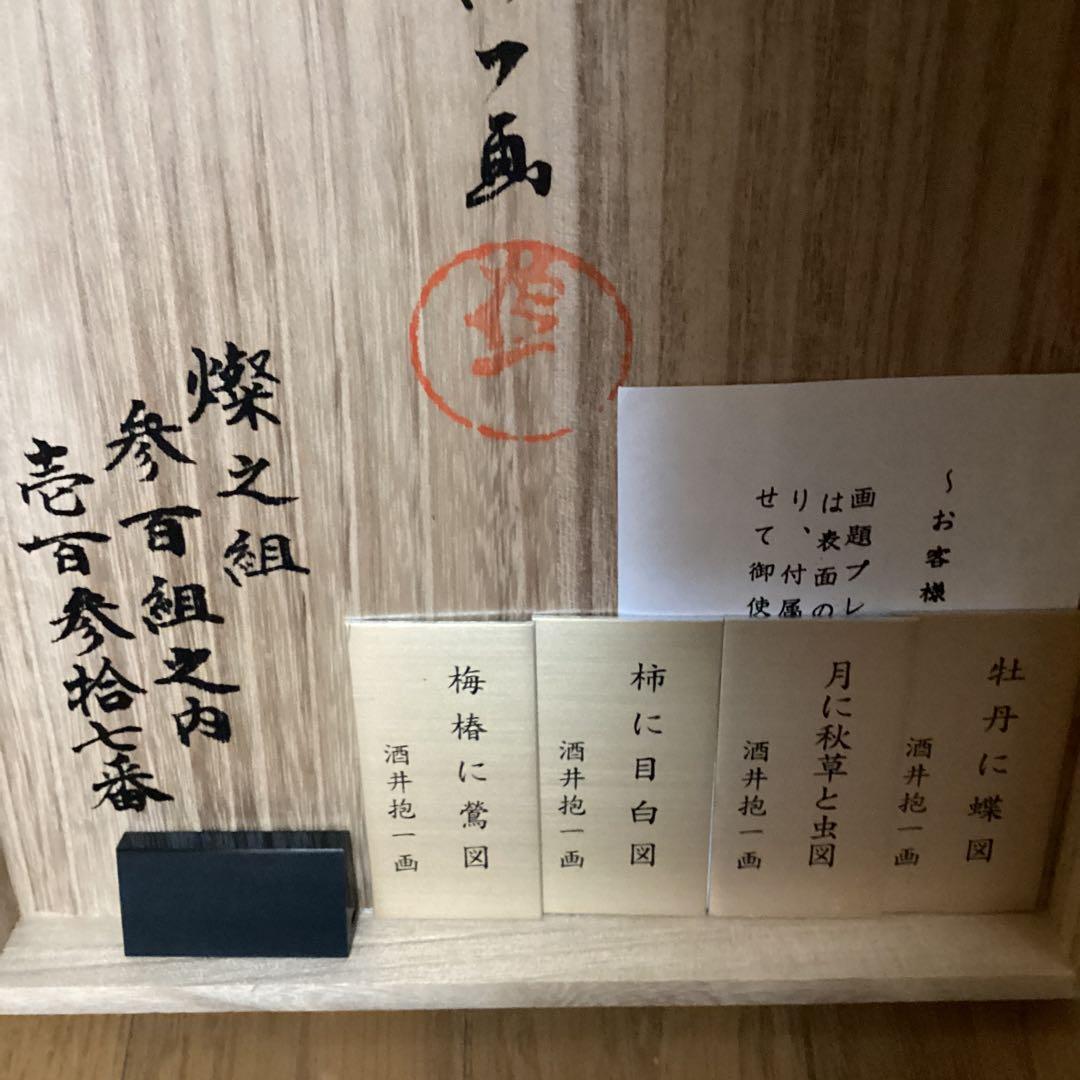 画
燦之組
参百組之内
壱百参拾七番
～お客様
画題プレ
は表面の
り、付属
せて御使
牡丹に蝶図
酒井抱一画
月に秋草と虫図
酒井抱一画
柿に目白図
酒井抱一画
梅椿に鶯図
酒井抱一画